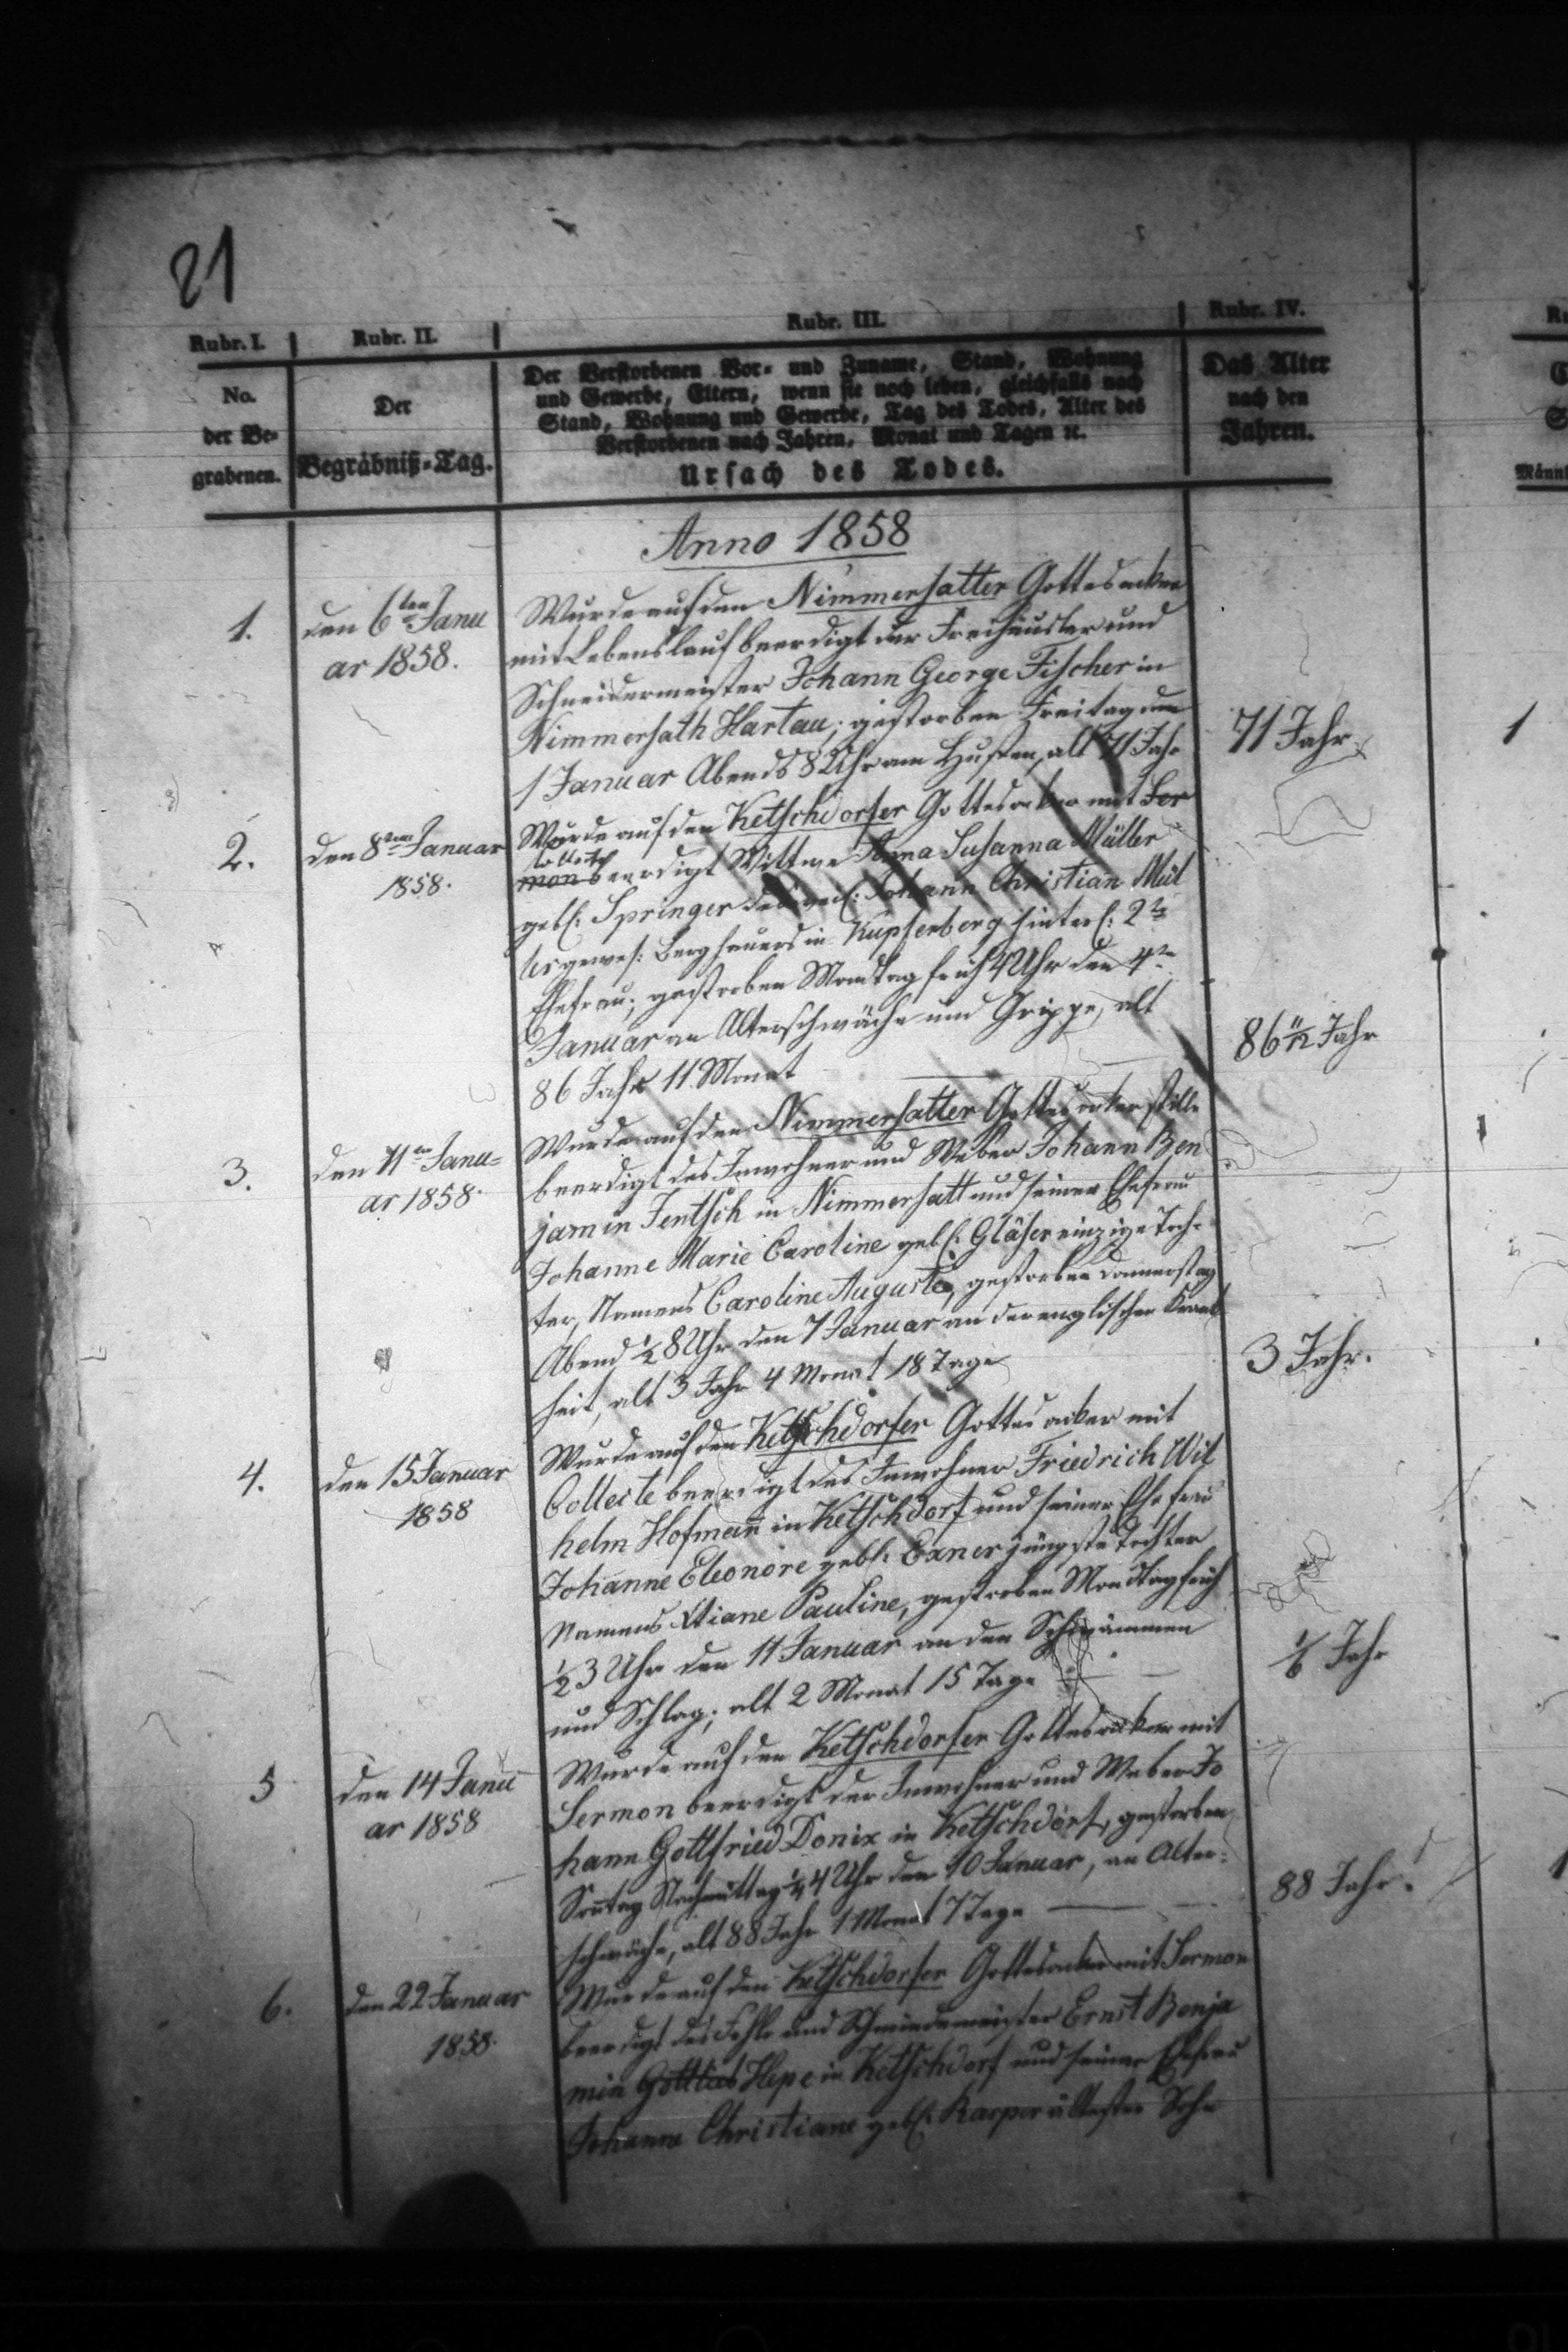 21
Rubr. I.
Rubr. II.
Rubr. III.
Rubr. IV.
No.
der Be-
grabenen.
Der
Begräbniß-Tag.
Der Verstorbenen Vor- und Zuname, Stand, Wohnung
und Gewerbe, Eltern, wenn sie noch leben, gleichfalls nach
Stand, Wohnung und Gewerbe, Tag des Todes, Alter des
Verstorbenen nach Jahren, Monat und Tagen ꝛc.
Ursach des Todes.
Das Alter
nach den
Jahren.
Männl
Anno 1858
1.
den 6ten Janu
ar 1858.
Wurde auf den Nimmersatter Gottesacker
mit Lebenslauf beerdigt der Freihäusler und
Schneidermeister Johann George Fischer in
Nimmersath Hartau; gestorben Freitag den
1 Januar Abends 8 Uhr am Husten, alt 71 Jahr
71 Jahr
1
2.
den 8ten Januar
1858.
Wurde auf den Ketschdorfer Gottesacker mit Ser
mon beerdigt Wittwe Anna Susanna Müller
geb. Springer des Johann Christian Mül
lers gewes: Berghauers in Kupferberg hinterl: 2te
Ehefrau; gestorben Montag früh 4 Uhr den 4ten
Januar an Alterschwäche und Grippe, alt
86 Jahr 11 Monat
86 11/12 Jahr
3.
den 11ten Janu-
ar 1858.
Wurde auf den Nimmersatter Gottesacker stille
beerdigt des Inwohner und Weber Johann Ben
jamin Jentsch in Nimmersatt und seiner Ehefrau
Johanne Marie Caroline geb: Gläser einzige Toch-
ter, Namens Caroline Auguste, gestorben Donnerstag
Abend 1/2 8 Uhr den 7 Januar an der englischen Krank
heit, alt 3 Jahr 4 Monat 18 Tage
3 Jahr.
4.
den 15 Januar
1858
Wurde auf den Ketschdorfer Gottesacker mit
Collecte beerdigt des Inwohner Friedrich Wil
helm Hofmann in Ketschdorf und seiner Ehefrau
Johanne Eleonore geb: Exner jüngste Tochter
Namens Pauline, gestorben Montag früh
1/2 3 Uhr den 11 Januar an den Schwämmen
und Schlag; alt 2 Monat 15 Tage
1/6 Jahr
5
den 14 Janu
ar 1858
Wurde auf den Ketschdorfer Gottesacker mit
Sermon beerdigt der Inwohner und Weber Jo
hann Gottfried Donix in Ketschdorf, gestorben
Sontag Nachmittag 1/4 4 Uhr den 10 Januar, an Alter-
schwäche, alt 88 Jahr 1 Monat 7 Tage
88 Jahr.
6.
den 22 Januar
1858.
Wurde auf den Ketschdorfer Gottesacker mit Sermon
beerdigt des und Schmiedemeister Ernst Benja
min Gottlieb Hepe in Ketschdorf und seiner Ehefrau
Johanne Christiane geb: Karper ältester Sohn